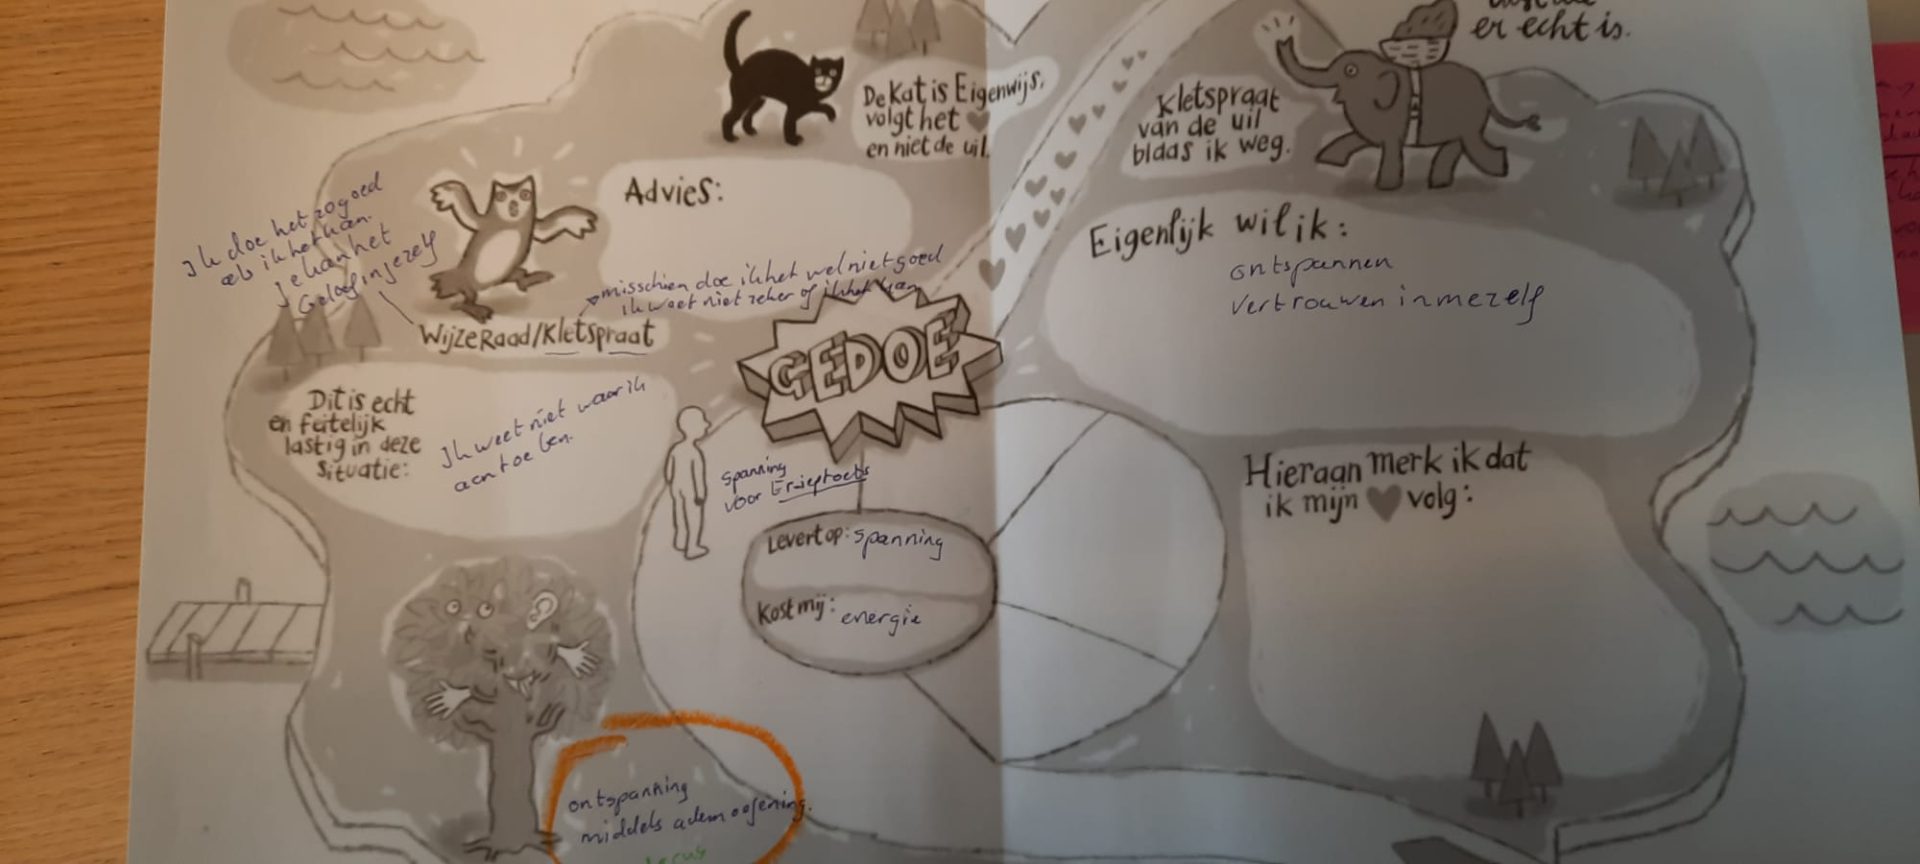 er echt is.
De Kat is Eigenwijs,
volgt het
en niet de uil.
Kletspraat
van de uil
blaas ik weg.
Advies:
Ik doe het zo goed
als ik het kan.
Je kan het
Geloof in jezelf
misschien doe ik het wel niet goed
ik weet niet zeker of ik het kan
Wijze Raad/Kletspraat
GEDOE
Eigenlijk wil ik:
ontspannen
vertrouwen in mezelf
Dit is echt
en feitelijk
lastig in deze
situatie:
Ik weet niet waar ik
aan toe ben.
spanning
voor
Levert op: spanning
Kost mij: energie
Hieraan merk ik dat
ik mijn volg:
ontspanning
middels ademoefening.